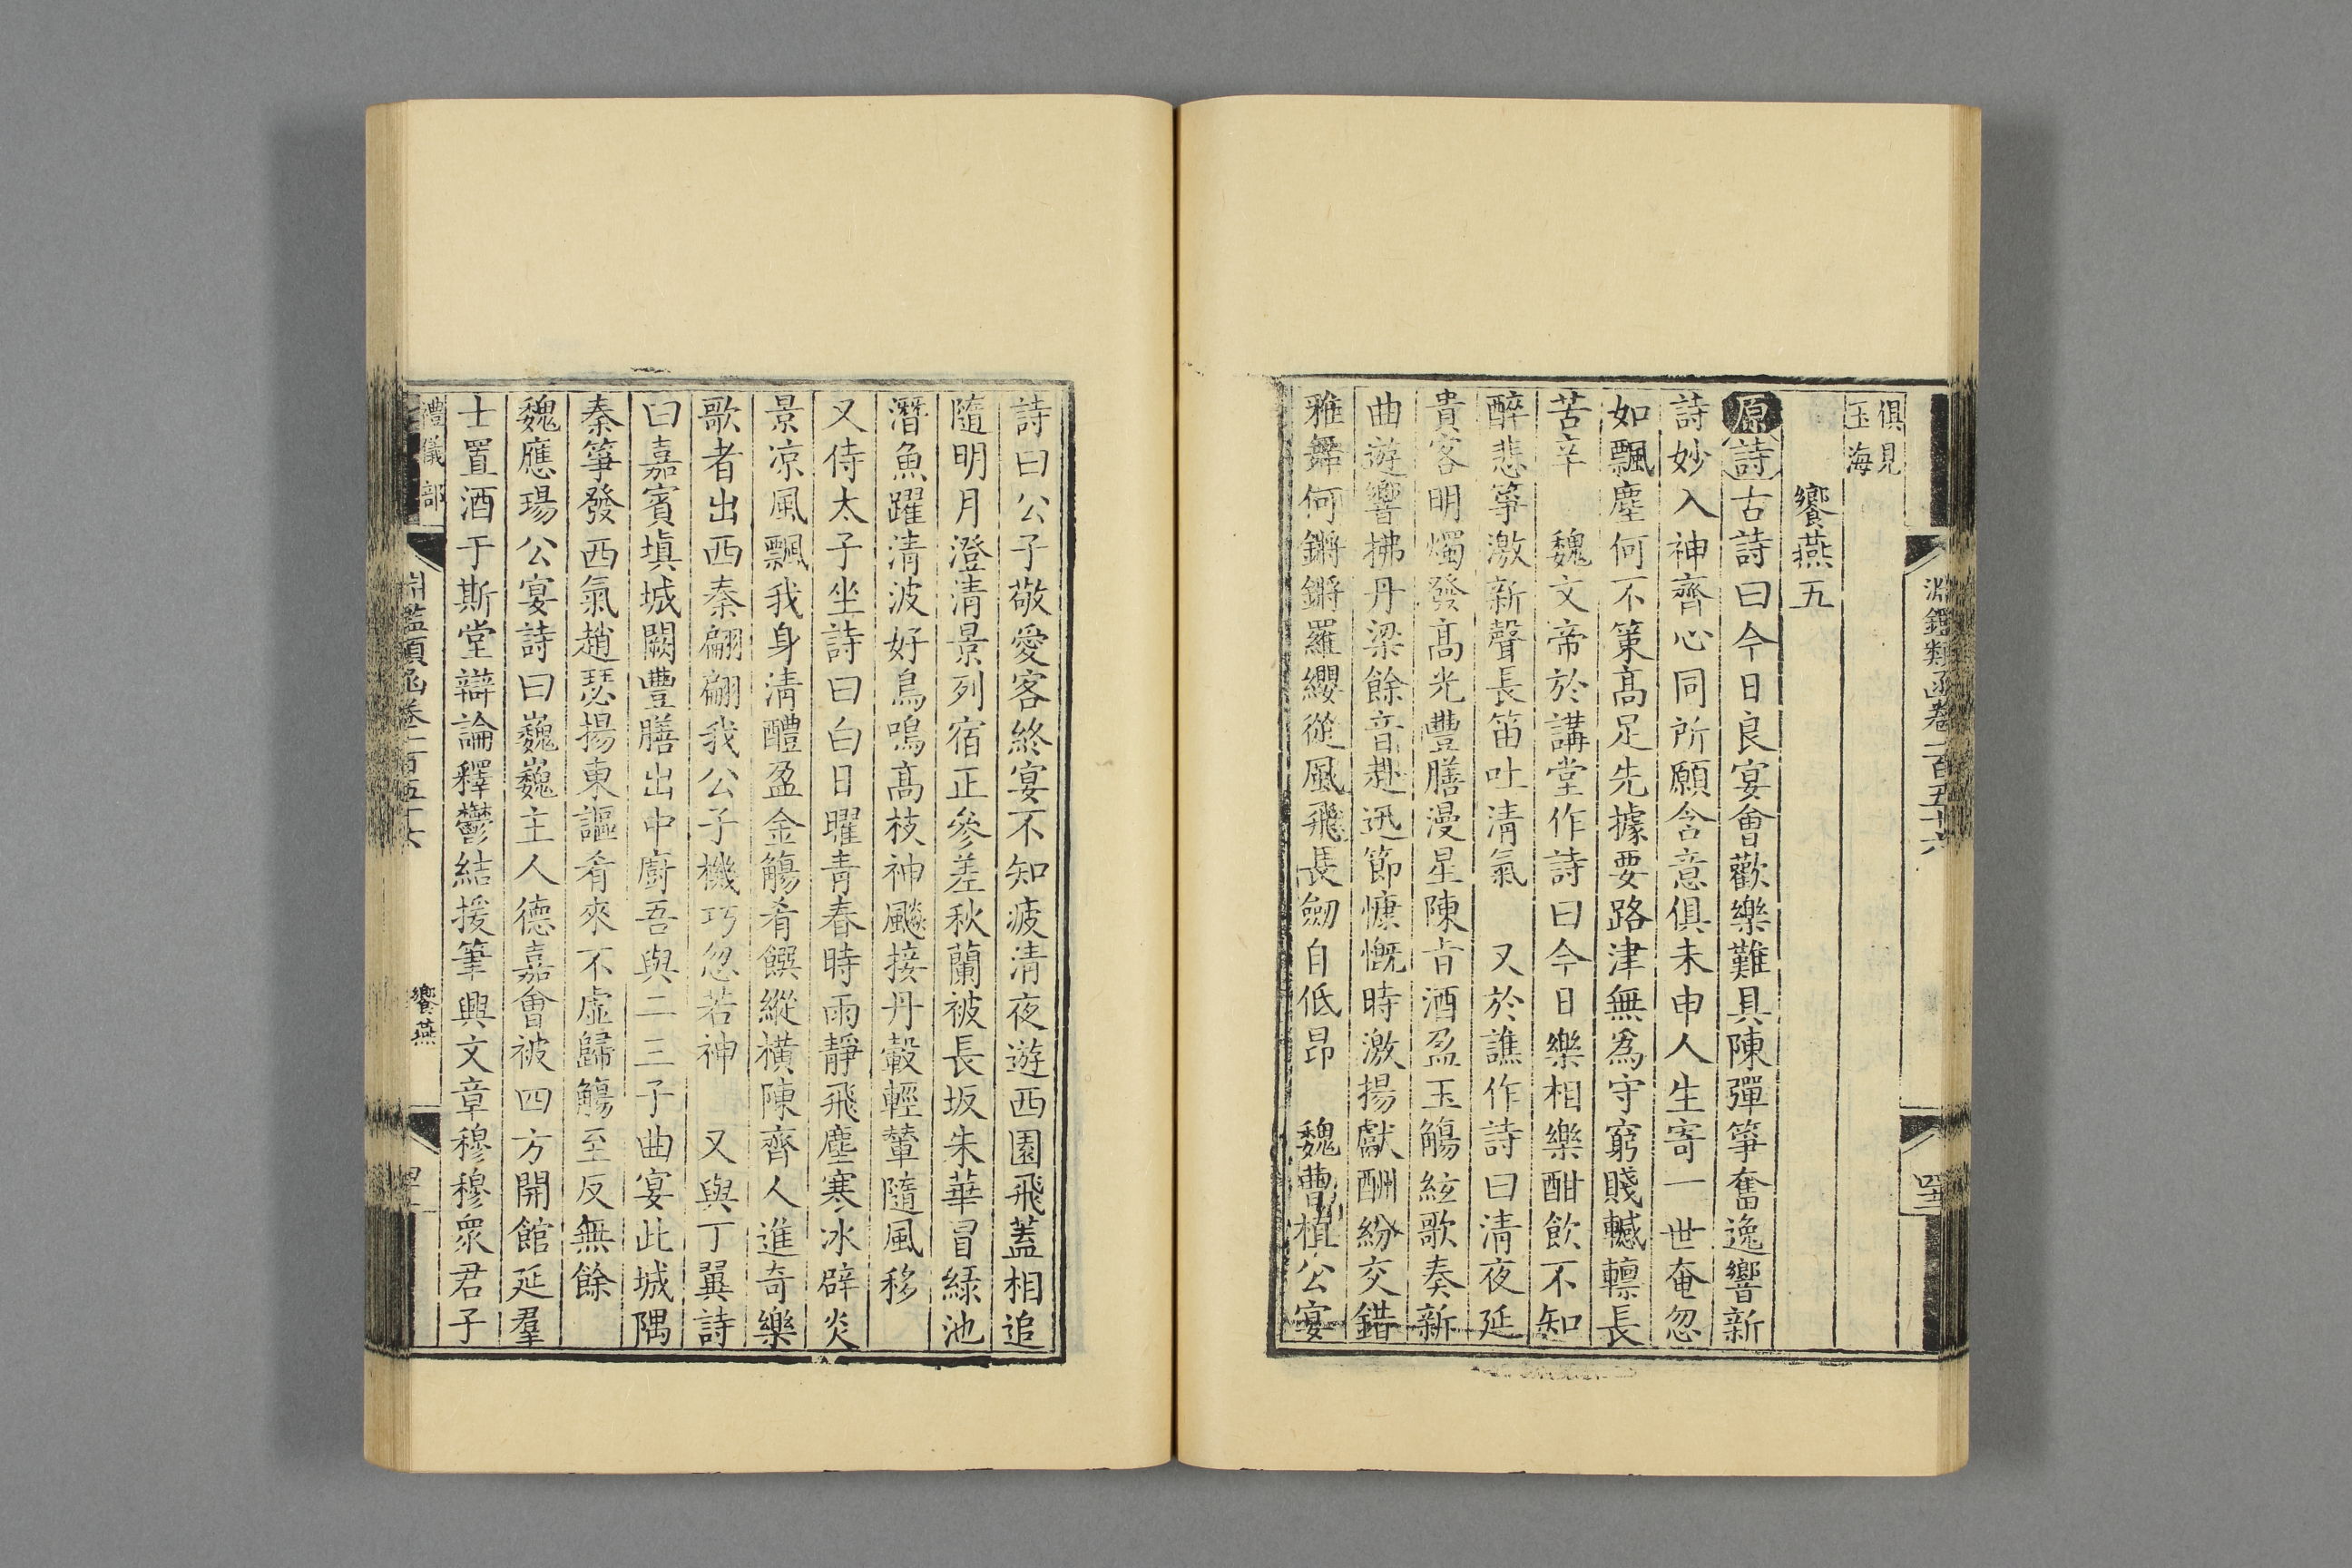 淵鑑類函卷一百五十六
俱見
玉海
饗燕五
原詩古詩曰今日良宴會歡樂難具陳彈箏奮逸響新
詩妙入神齊心同所願含意俱未申人生寄一世奄忽
如飄塵何不策高足先據要路津無為守窮賤轗軻長
苦辛　魏文帝於講堂作詩曰今日樂相樂酣飲不知
醉悲箏激新聲長笛吐清氣　又於譙作詩曰清夜延
貴客明燭發高光豐膳漫星陳旨酒盈玉觴絃歌奏新
曲遊響拂丹梁餘音赴迅節慷慨時激揚獻酬紛交錯
雅舞何鏘鏘羅纓從風飛長劒自低昂　魏曹植公宴
詩曰公子敬愛客終宴不知疲清夜遊西園飛蓋相追
隨明月澄清景列宿正參差秋蘭被長坂朱華冒綠池
潛魚躍清波好鳥鳴高枝神飈接丹轂輕輦隨風移
又侍太子坐詩曰白日曜青春時雨靜飛塵寒冰辟炎
景凉風飄我身清醴盈金觴肴饌縱橫陳齊人進奇樂
歌者出西秦翩翩我公子機巧忽若神　又與丁翼詩
曰嘉賓塡城闕豐膳出中廚吾與二三子曲宴此城隅
秦箏發西氣趙瑟揚東謳肴來不虛歸觴至反無餘
魏應瑒公宴詩曰巍巍主人德嘉會被四方開館延羣
士置酒于斯堂辯論釋鬱結援筆興文章穆穆衆君子
禮儀部
淵鑑類函卷一百五十六
饗燕